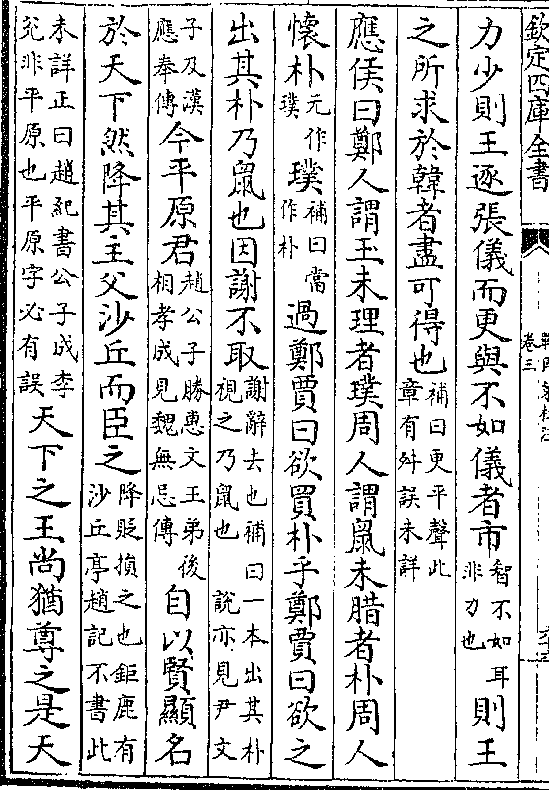 欽定四庫全書
卷三
力少則王逐張儀而更與不如儀者市智不如耳非力也則王
之所求於韓者盡可得也補曰更平聲此章有舛誤未詳
應侯曰鄭人謂玉未理者璞周人謂鼠未腊者朴周人
懷朴元作璞璞補曰當作朴過鄭賈曰欲買朴乎鄭賈曰欲之
出其朴乃鼠也因謝不取謝辭去也補曰一本出其朴視之乃鼠也說亦見尹文
子及漢應奉傳今平原君趙公子勝惠文王弟後相孝成見魏無忌傳自以賢顯名
於天下然降其主父沙丘而臣之降貶損之也鉅鹿有沙丘亭趙記不書此
未詳正曰趙紀書公子成李兊非平原也平原字必有誤天下之王尚猶尊之是天